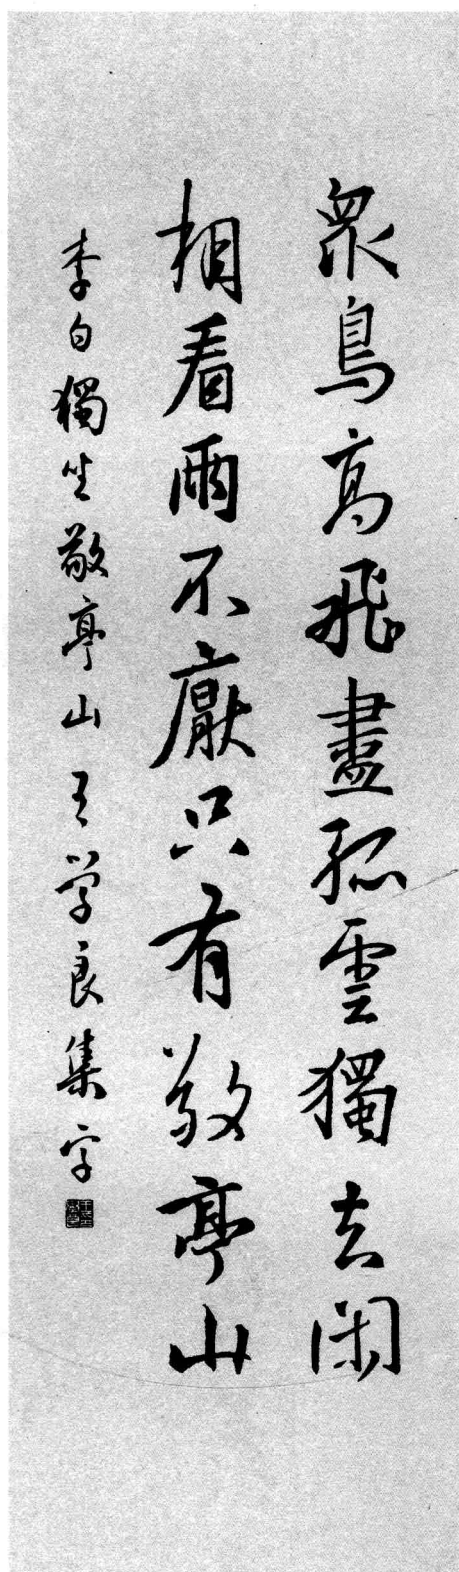 眾鳥高飛盡孤雲獨去閑
相看兩不厭只有敬亭山
李白獨坐敬亭山 王学良集字